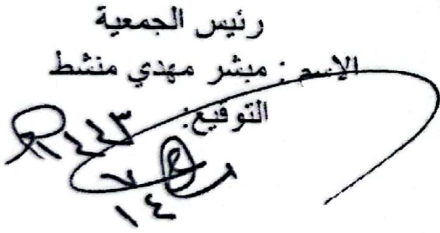 رئيس الجمعية
الإسم : مبشر مهدي منشط
التوقيع:
١٤٤٣
٧
١٤